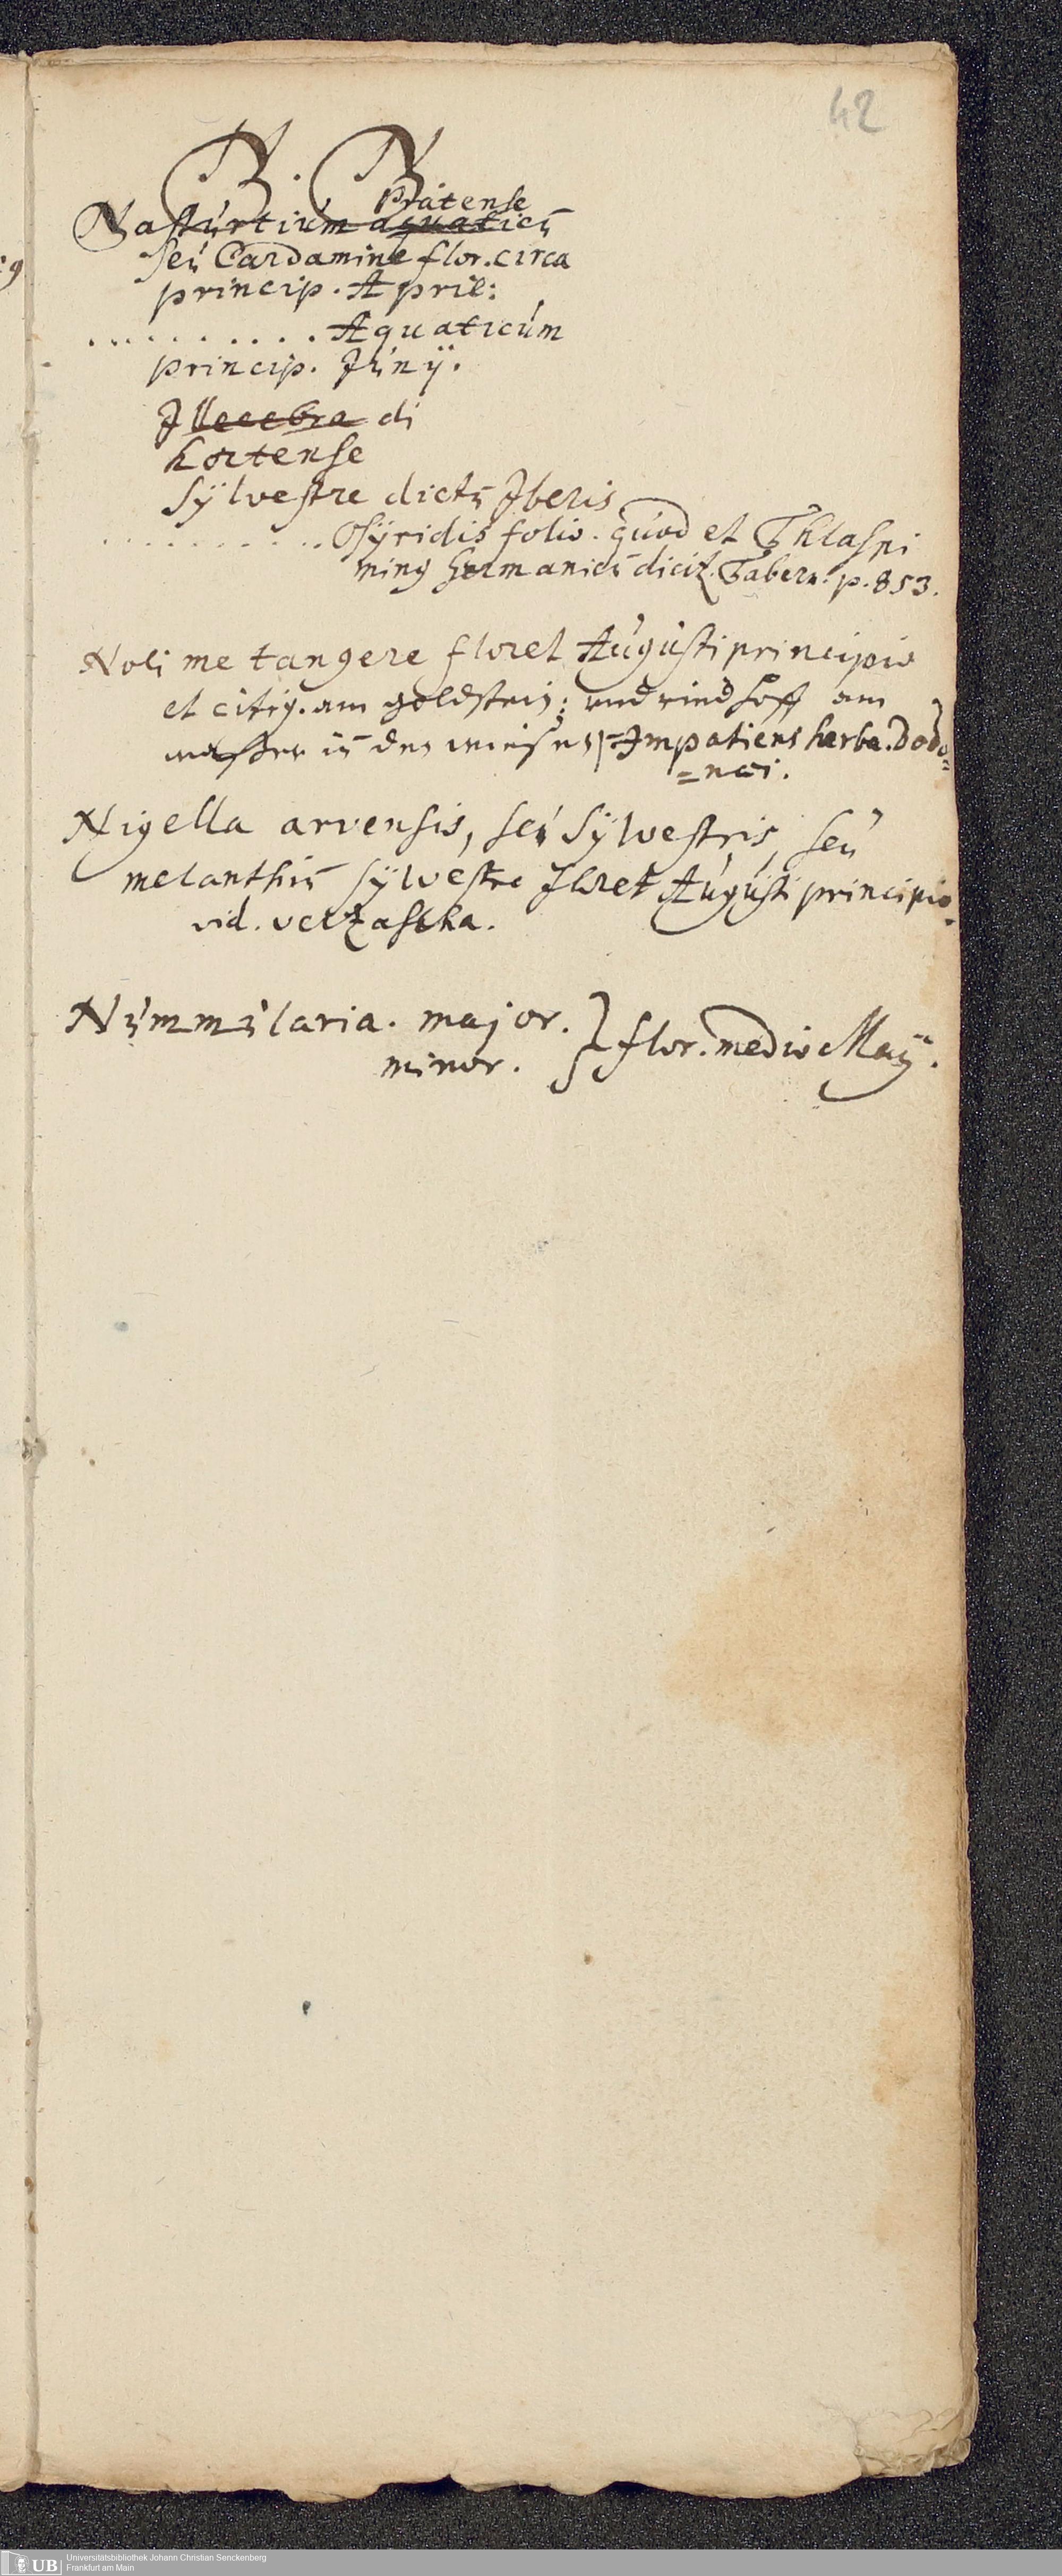 42
N. N.
Pratense
Nasturtium aquaticū
seu Cardamine flor. circa
princip. April:
. . . . . . . . . . Aquaticum
princip. Junÿ.
Illecebra di
hortense
Sÿlvestre dictū Iberis
. . . . . . . . . . . Osÿridis folio. quod et Thlaspi
Germanicū dicit. Tabern. p. 853.
Noli me tangere floret Augusti principio
et citiÿ. am goldstein; und riedhoff am
waßer in den wiesen Impatiens herba. Dodo=
=naei.
Nigella arvensis, seu Sÿlvestris, seu
melanthiū sÿlvestre floret Augusti principio.
vid. verzascha.
Nummularia. major. } flor. medio Maÿ.
minor.
UB Universitätsbibliothek Johann Christian Senckenberg
Frankfurt am Main